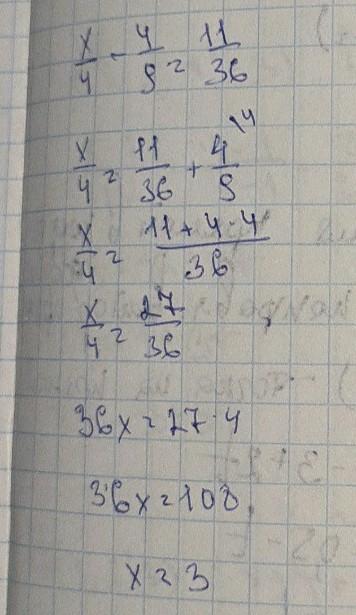 x/4 - 4/9 = 11/36
x/4 = 11/36 + 4/9 \4
x/4 = (11 + 4 · 4)/36
x/4 = 27/36
36x = 27 · 4
36x = 108
x = 3